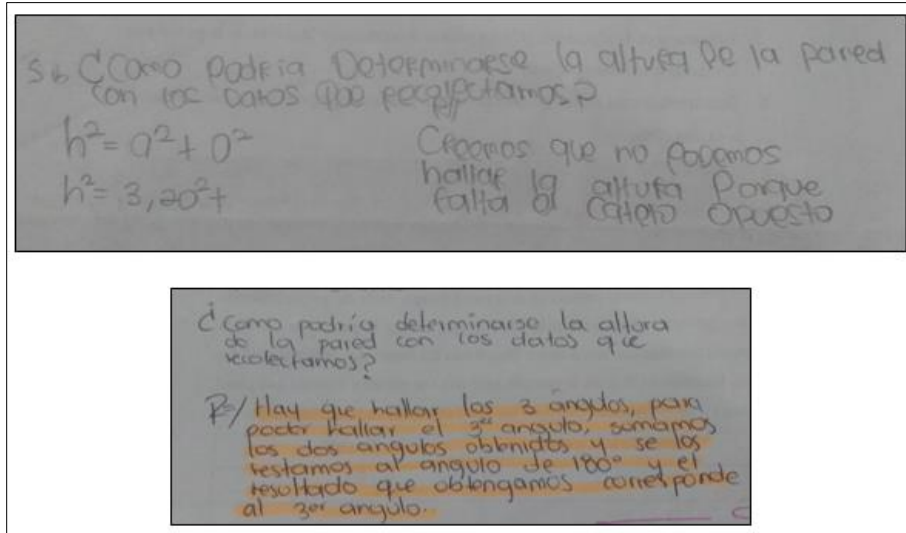 5. b ¿Como podria Determinarse la altura De la pared
con los datos que recolectamos?
h² = a² + o²
h² = 3,20² +
Creemos que no podemos
hallar la altura Porque
falta el cateto opuesto
¿Como podría determinarse la altura
de la pared con los datos que
recolectamos?
R=/ Hay que hallar los 3 ángulos, para
poder hallar el 3er angulo, sumamos
los dos angulos obtenidos y se los
restamos al angulo de 180° y el
resultado que obtengamos corresponde
al 3er angulo.